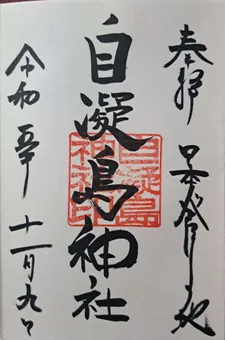 奉拝 日本発祥之地
自凝島神社
自凝島
神社印
令和五年 十一月九日